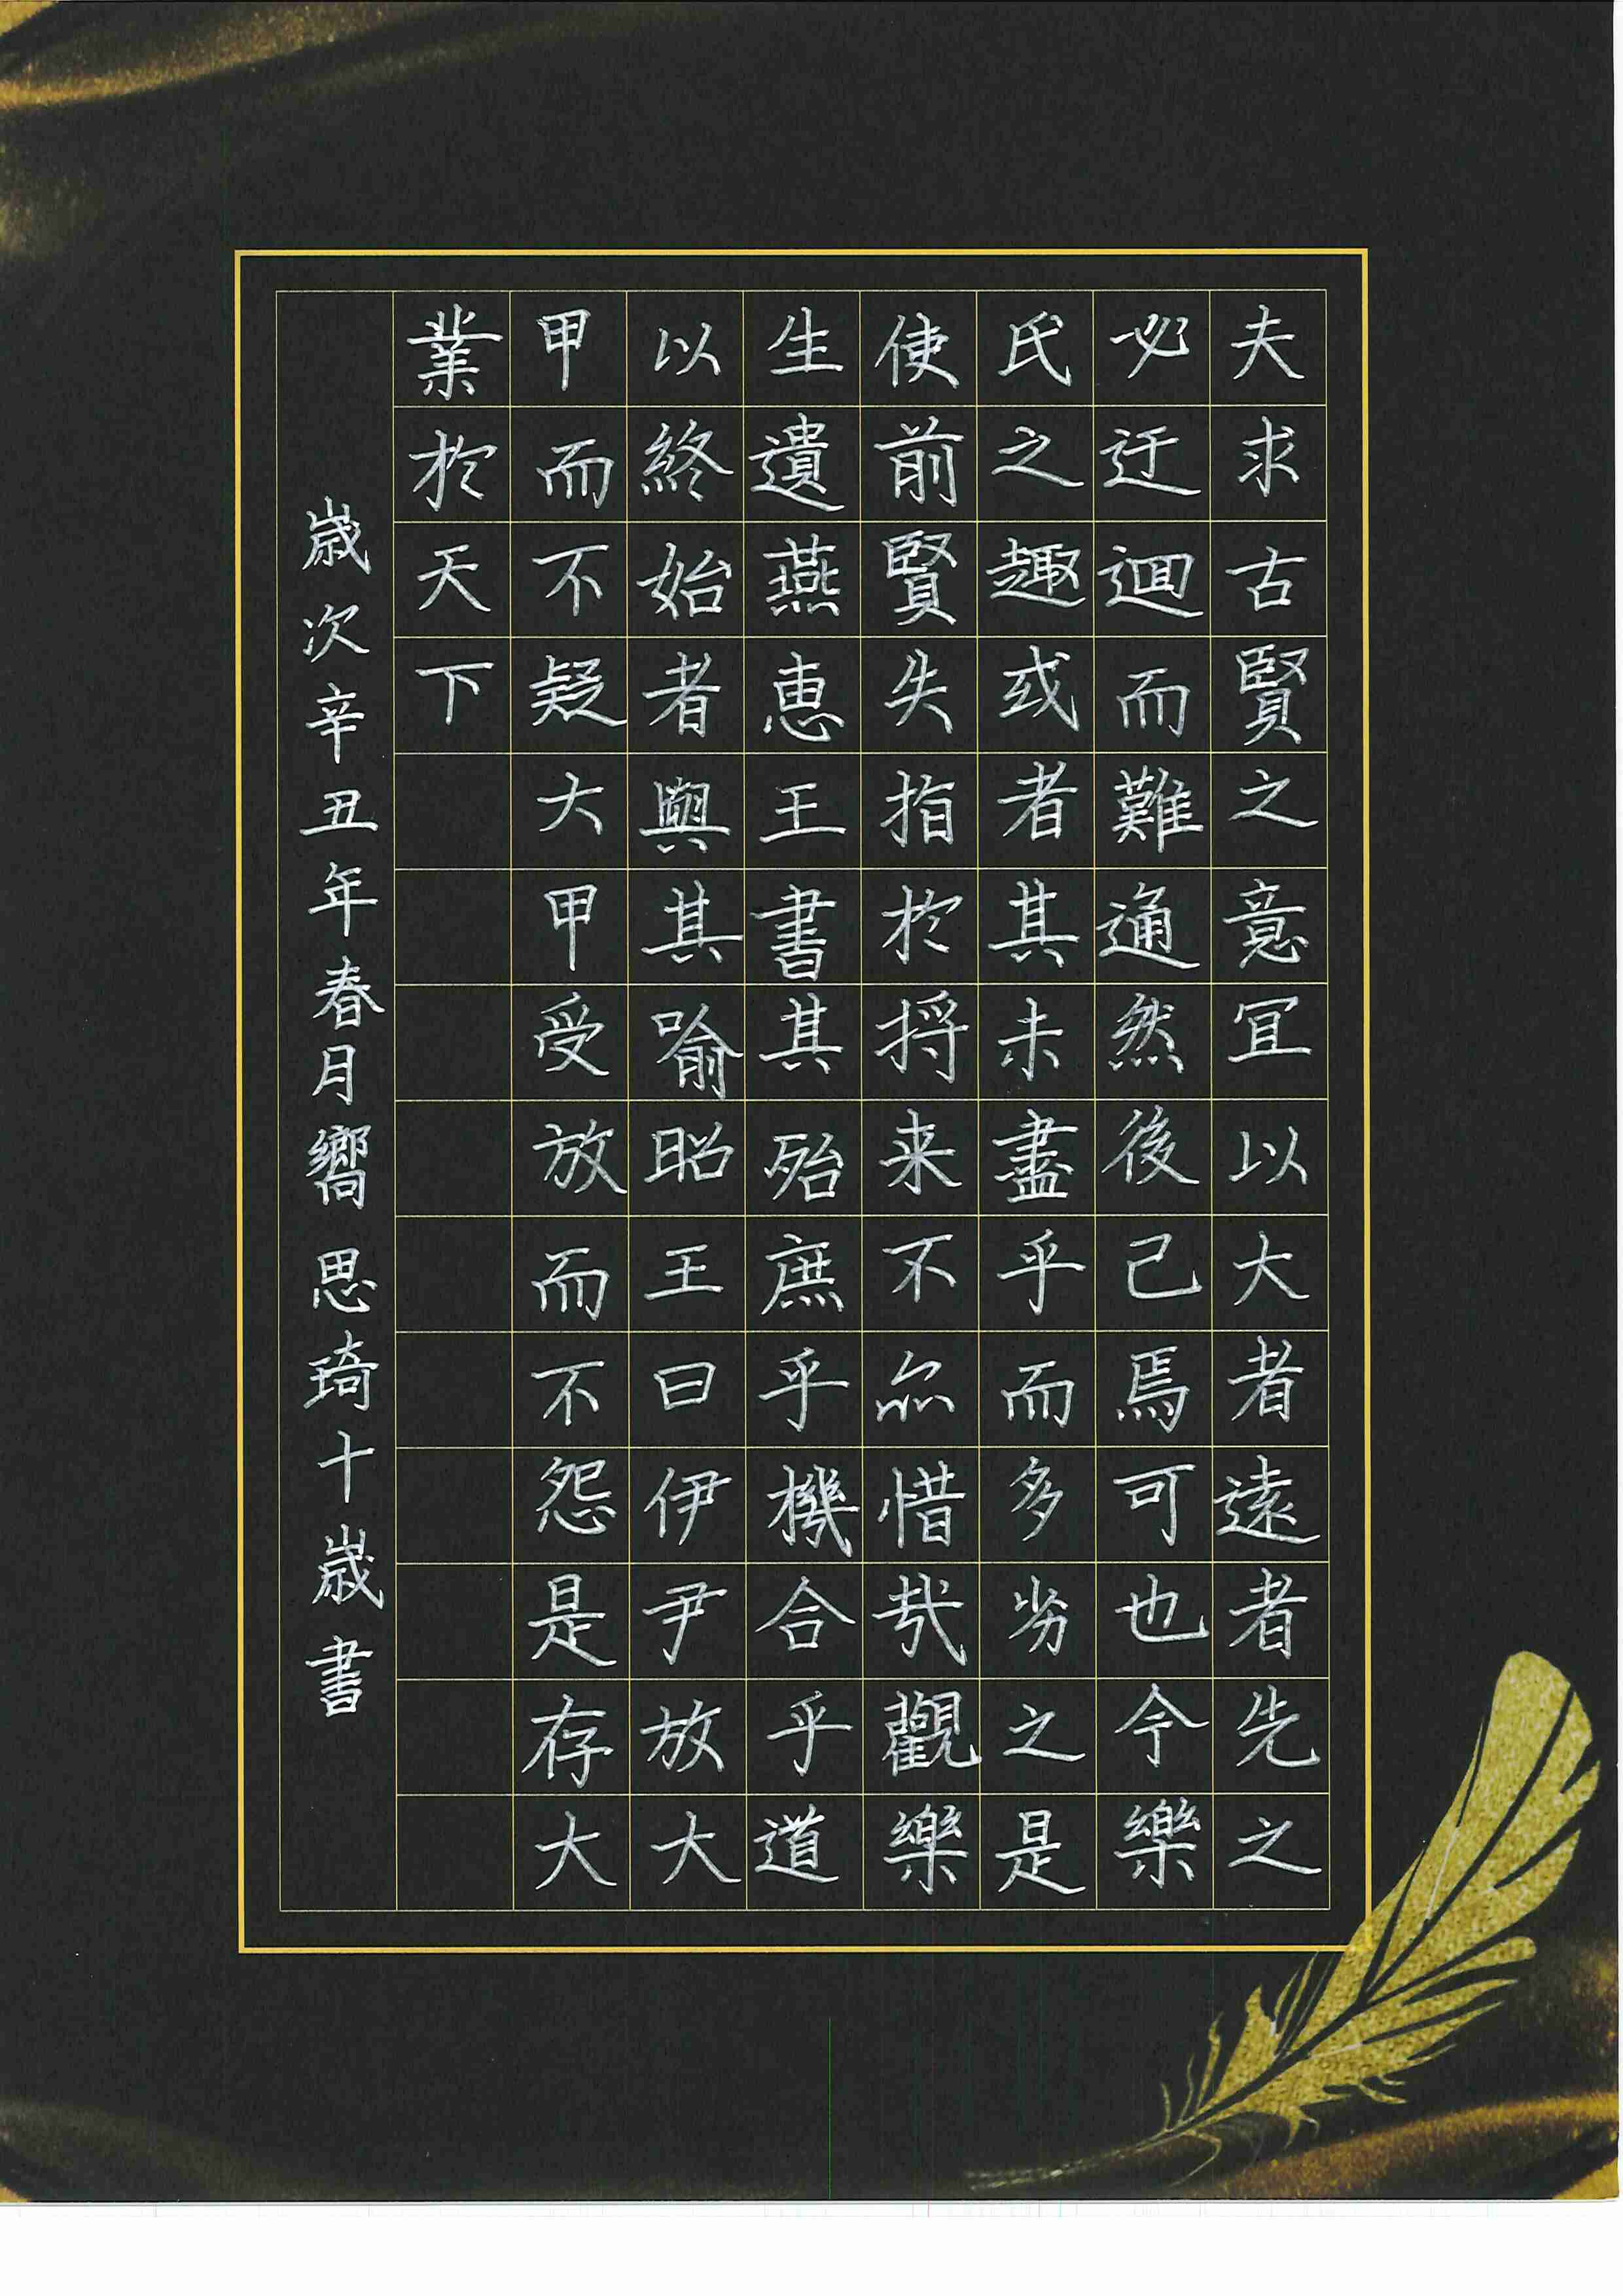 夫求古賢之意宜以大者遠者先之
必迂迴而難通然後已焉可也今樂
氏之趣或者其未盡乎而多劣之是
使前賢失指於将来不亦惜哉觀樂
生遺燕惠王書其殆庶乎機合乎道
以終始者與其喻昭王曰伊尹放大
甲而不疑大甲受放而不怨是存大
業於天下
歲次辛丑年春月嚮思琦十歲書